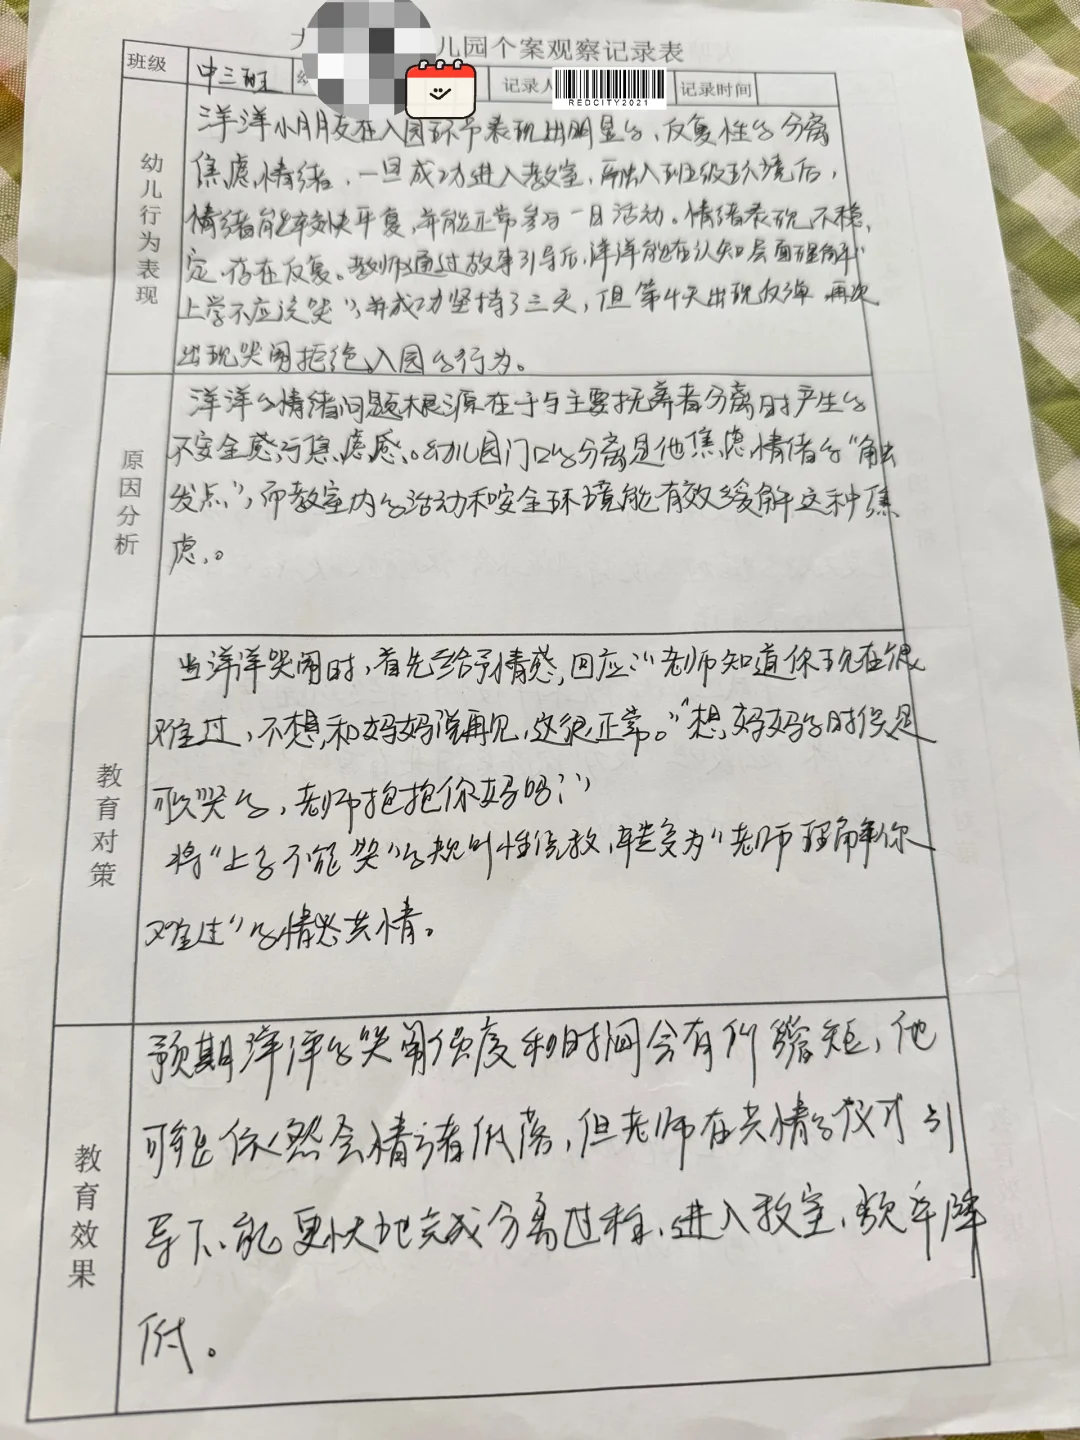 儿园个案观察记录表
班级 中三班 记录人 REDCITY2021 记录时间
幼儿行为表现
洋洋小朋友在入园环节表现出明显的、反复性的分离
焦虑情绪,一旦成功进入教室,融入班级环境后,
情绪能较快平复,并能正常参与一日活动。情绪表现不稳
定,存在反复。教师通过故事引导后,洋洋能在认知层面理解“
上学不应该哭”,并成功坚持了三天,但第4天出现反弹,再次
出现哭闹拒绝入园的行为。
原因分析
洋洋的情绪问题根源在于与主要抚养者分离时产生的
不安全感与焦虑感。幼儿园门口的分离是他焦虑情绪的“触
发点”,而教室内的活动和安全环境能有效缓解这种焦
虑。
教育对策
当洋洋哭闹时,首先给予情感回应:“老师知道你现在很
难过,不想和妈妈说再见,这很正常。”“想妈妈的时候是
可以哭的,老师抱抱你好吗?”
将“上学不能哭”的规则性说教,转变为“老师理解你
难过”的情感共情。
教育效果
预期洋洋的哭闹强度和时间会有所缩短,他
可能依然会情绪低落,但老师在共情的仪才引
导下,能更快地完成分离过程,进入教室,频率降
低。